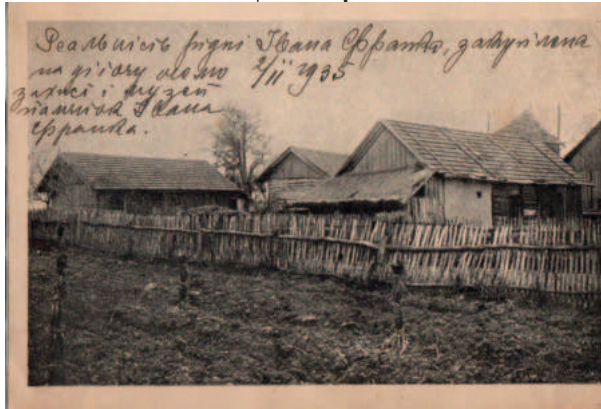 Реальність рідні Івана Франка, закуплена
на 2/II 1935
і музей
памяток Івана
Франка.